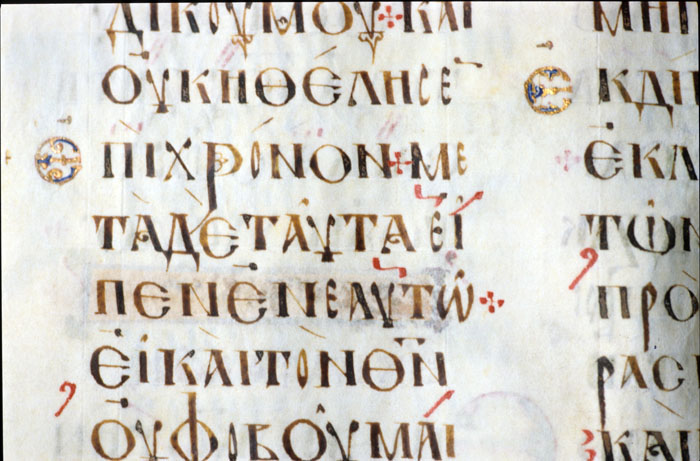 ΔΙΚΟΥΜΟΥ ΚΑΙ
ΟΥΚΗΘΕΛΗCΕ̅
ΕΠΙΧΡΟΝΟΝ ΜΕ
ΤΑΔΕΤΑΥΤΑΕΙ
ΠΕΝΕΝΕΑΥΤΩ
ΕΙΚΑΙΤΟΝΘ̅Ν̅
ΟΥΦΟΒΟΥΜΑΙ
ΜΗΠ
ΕΚΔΙ
ΕΚΛ
ΤΩΝ
ΠΡΟ
ΡΑC
ΚΑΙ